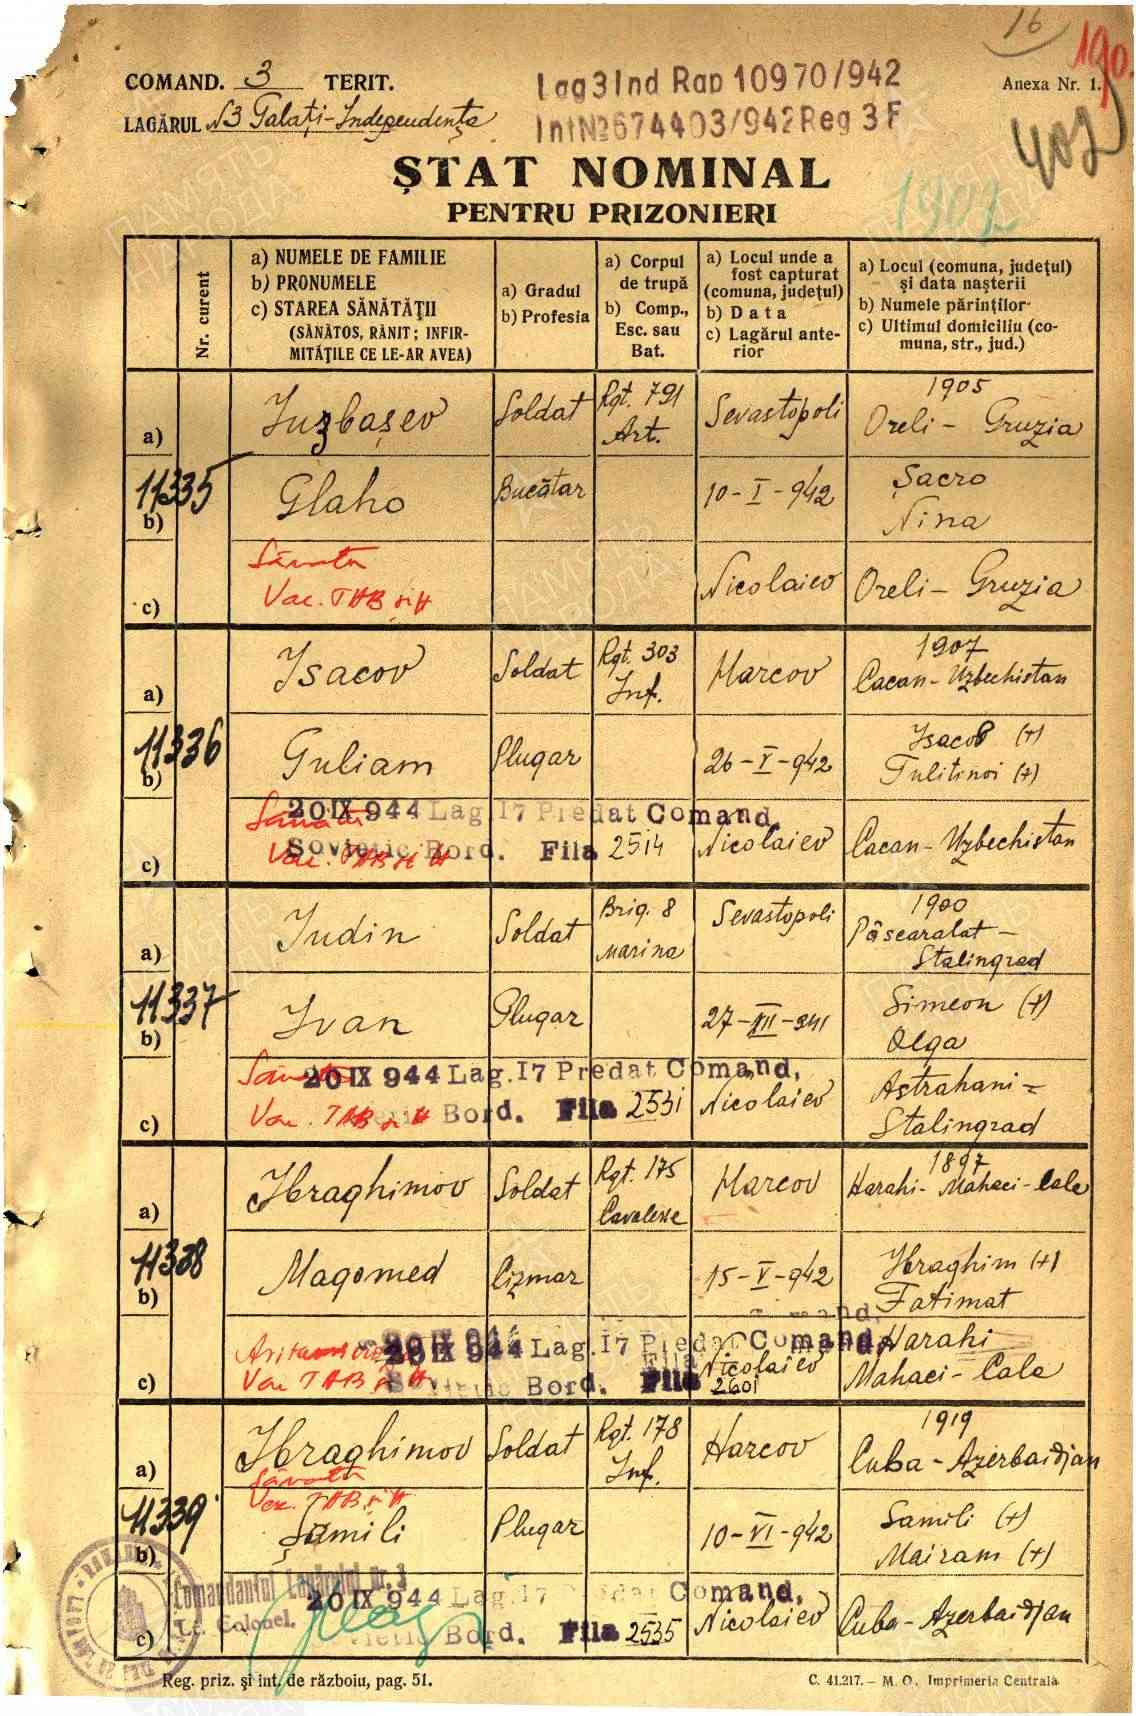 16
190.
COMAND. 3 TERIT.
Lag 3 Ind Rap 10970/942
Anexa Nr. 1.
LAGĂRUL N3 Galați-Independența
Int №674403/942 Reg 3F
402
ȘTAT NOMINAL
1902
PENTRU PRIZONIERI
Nr. curent
a) NUMELE DE FAMILIE
b) PRONUMELE
c) STAREA SĂNĂTĂŢII
(SĂNĂTOS, RĂNIT; INFIR-
MITĂŢILE CE LE-AR AVEA)
a) Gradul
b) Profesia
a) Corpul
de trupă
b) Comp.,
Esc. sau
Bat.
a) Locul unde a
fost capturat
(comuna, judeţul)
b) Data
c) Lagărul ante-
rior
a) Locul (comuna, judeţul)
şi data naşterii
b) Numele părinţilor
c) Ultimul domiciliu (co-
muna, str., jud.)
a) Iuzbașev Soldat Rgt. 791 Art. Sevastopoli 1905 Oreli - Gruzia
11335
b) Glaho Bucătar 10-I-942 Șacro Nina
c) Vac. TAB și H Nicolaiev Oreli - Gruzia
a) Isacov Soldat Rgt. 303 Inf. Harcov 1907 Cacan-Uzbechistan
11336
b) Guliam Plugar 26-V-942 Isacov (+) Tulitinoi (+)
20 IX 944 Lag. 17 Predat Comand.
c) Sovietic Bord. Fila 2514 Nicolaiev Cacan-Uzbechistan
a) Iudin Soldat Brig. 8 Marina Sevastopoli 1900 Pâscaralat - Stalingrad
11337
b) Ivan Plugar 27-XII-941 Simeon (+) Olga
20 IX 944 Lag. 17 Predat Comand,
c) Vac. TAB și H Bord. Fila 2531 Nicolaiev Astrahani = Stalingrad
a) Ibraghimov Soldat Rgt. 175 Cavalerie Harcov 1897 Harahi-Mahaci-Cala
11338
b) Magomed Cizmar 15-V-942 Ibraghim (+) Fatimat
20 IX 944 Lag. 17 Predat Comand,
c) Vac TAB și H Sovietic Bord. Fila 2601 Nicolaiev Harahi Mahaci-Cala
a) Ibraghimov Soldat Rgt. 178 Inf. Harcov 1919 Cuba-Azerbaidjan
Vac. TAB și H
11339
b) Șamili Plugar 10-VI-942 Samili (+) Mairam (+)
Comandantul Lagărului nr. 3
Lt. Colonel.
20 IX 944 Lag. 17 Predat Comand,
c) Sovietic Bord. Fila 2535 Nicolaiev Cuba-Azerbaidjan
Reg. priz. şi int. de războiu, pag. 51.
C. 41.217. — M. O., Imprimeria Centrală
ПАМЯТЬ
НАРОДА